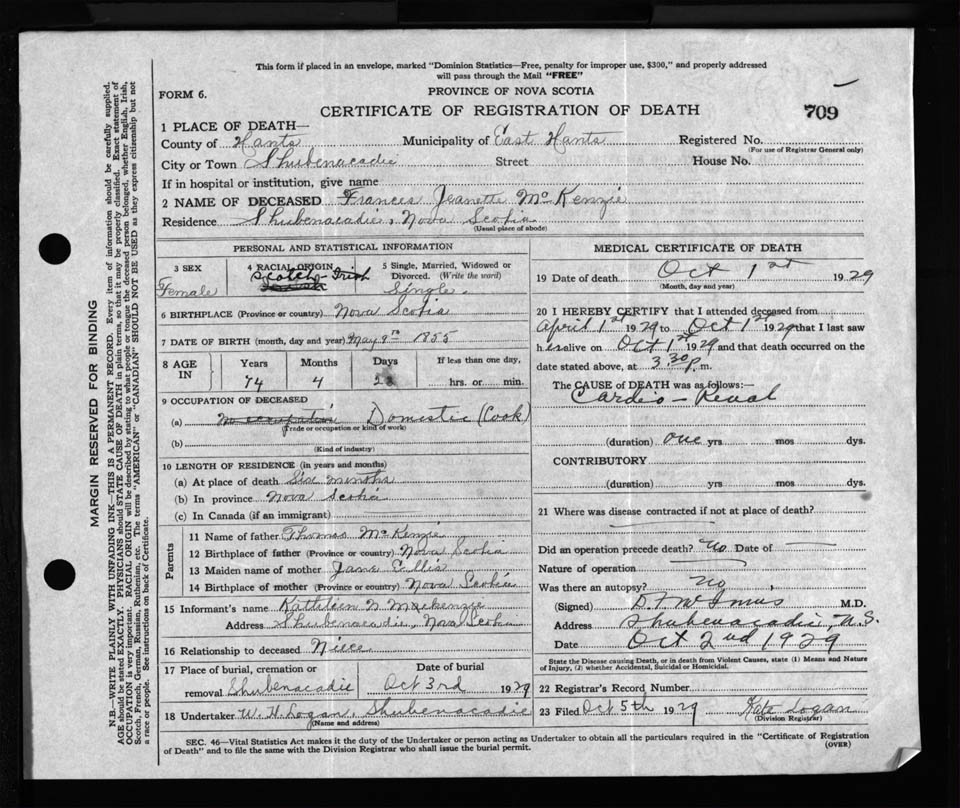 This form if placed in an envelope, marked "Dominion Statistics—Free, penalty for improper use, $300," and properly addressed
will pass through the Mail "FREE"
FORM 6.
PROVINCE OF NOVA SCOTIA
CERTIFICATE OF REGISTRATION OF DEATH
709
1 PLACE OF DEATH—
County of Hants Municipality of East Hants Registered No.
(For use of Registrar General only)
City or Town Shubenacadie Street House No.
If in hospital or institution, give name
2 NAME OF DECEASED Frances Jeanette McKenzie
Residence Shubenacadie, Nova Scotia
(Usual place of abode)
PERSONAL AND STATISTICAL INFORMATION
3 SEX
Female
4 RACIAL ORIGIN
Scotch-Irish
5 Single, Married, Widowed or
Divorced. (Write the word)
Single.
6 BIRTHPLACE (Province or country) Nova Scotia
7 DATE OF BIRTH (month, day and year) May 9th 1855
8 AGE
IN
Years Months Days If less than one day,
74 4 23 hrs. or min.
9 OCCUPATION OF DECEASED
(a) No occupation Domestic (Cook)
(Trade or occupation or kind of work)
(b)
(Kind of industry)
10 LENGTH OF RESIDENCE (in years and months)
(a) At place of death Six months
(b) In province Nova Scotia
(c) In Canada (if an immigrant)
Parents
11 Name of father Thomas McKenzie
12 Birthplace of father (Province or country) Nova Scotia
13 Maiden name of mother Jane
14 Birthplace of mother (Province or country) Nova Scotia
15 Informant's name Kathleen N. Mackenzie
Address Shubenacadie, Nova Scotia
16 Relationship to deceased Niece
17 Place of burial, cremation or Date of burial
removal Shubenacadie Oct 3rd 1929
18 Undertaker W. H. Logan, Shubenacadie
(Name and address)
MEDICAL CERTIFICATE OF DEATH
19 Date of death Oct 1st 1929
(Month, day and year)
20 I HEREBY CERTIFY that I attended deceased from
April 1st 1929 to Oct 1st 1929 that I last saw
her alive on Oct 1st 1929 and that death occurred on the
date stated above, at 3.30 p.m.
The CAUSE of DEATH was as follows:—
Cardio-Renal
(duration) one yrs mos dys.
CONTRIBUTORY
(duration) yrs mos dys.
21 Where was disease contracted if not at place of death?
Did an operation precede death? No Date of
Nature of operation
Was there an autopsy? no
(Signed) M.D.
Address Shubenacadie, N.S.
Date Oct 2nd 1929
State the Disease causing Death, or in death from Violent Causes, state (1) Means and Nature
of Injury, (2) whether Accidental, Suicidal or Homicidal.
22 Registrar's Record Number
23 Filed Oct 5th 1929 Kate Logan
(Division Registrar)
SEC. 46—Vital Statistics Act makes it the duty of the Undertaker or person acting as Undertaker to obtain all the particulars required in the "Certificate of Registration
of Death" and to file the same with the Division Registrar who shall issue the burial permit.
(OVER)
MARGIN RESERVED FOR BINDING
N.B.—WRITE PLAINLY WITH UNFADING INK—THIS IS A PERMANENT RECORD. Every item of information should be carefully supplied.
AGE should be stated EXACTLY. PHYSICIANS should STATE CAUSE OF DEATH in plain terms, so that it may be properly classified. Exact statement of
OCCUPATION is very important. RACIAL ORIGIN will be described by stating to what people or tongue the deceased person belonged, whether English, Irish,
Scotch, French, German, Russian, Ruthenian, etc. The terms "AMERICAN" or "CANADIAN" SHOULD NOT BE USED as they express citizenship but not
a race or people. See instructions on back of Certificate.